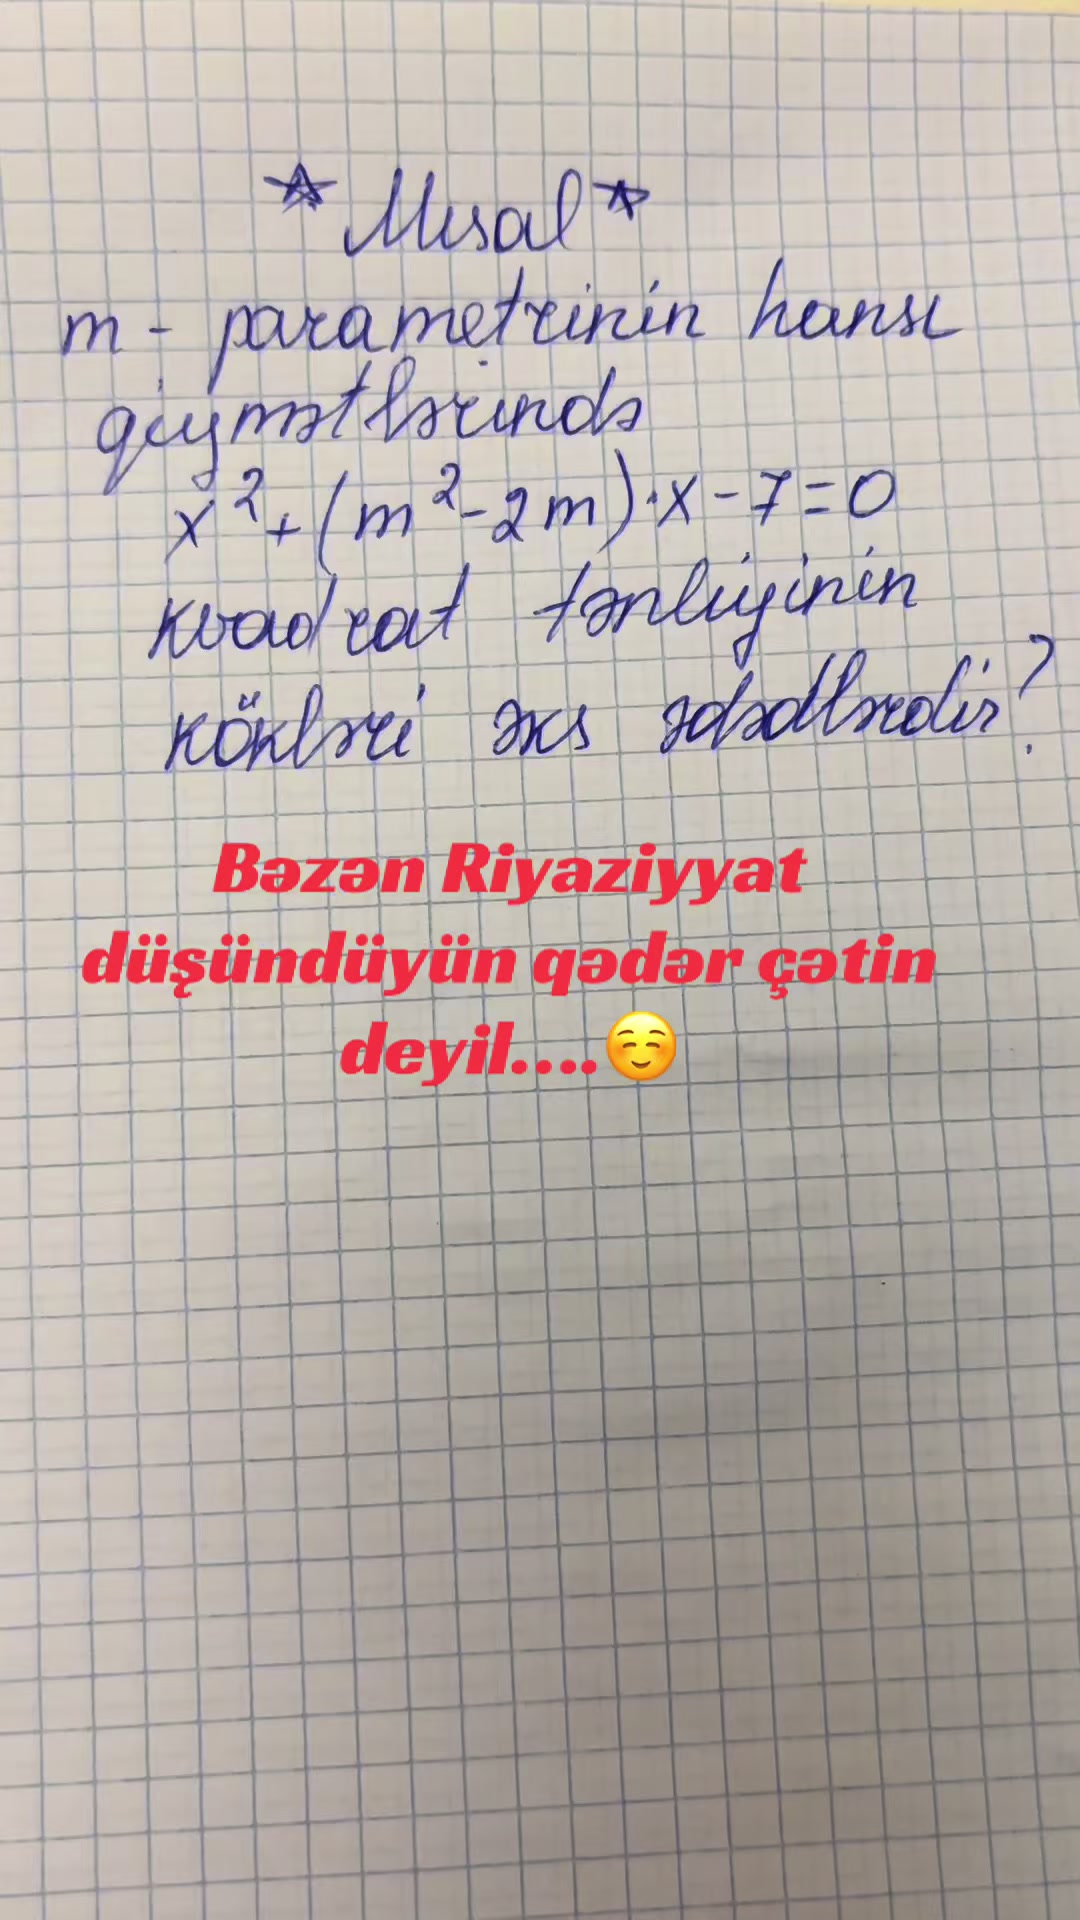 Misal
m - parametrinin hansı
qiymətlərində
x² + (m² - 2m)·x - 7 = 0
kvadrat tənliyinin
kökləri əks ədədlərdir?
Bəzən Riyaziyyat
düşündüyün qədər çətin
deyil....☺️